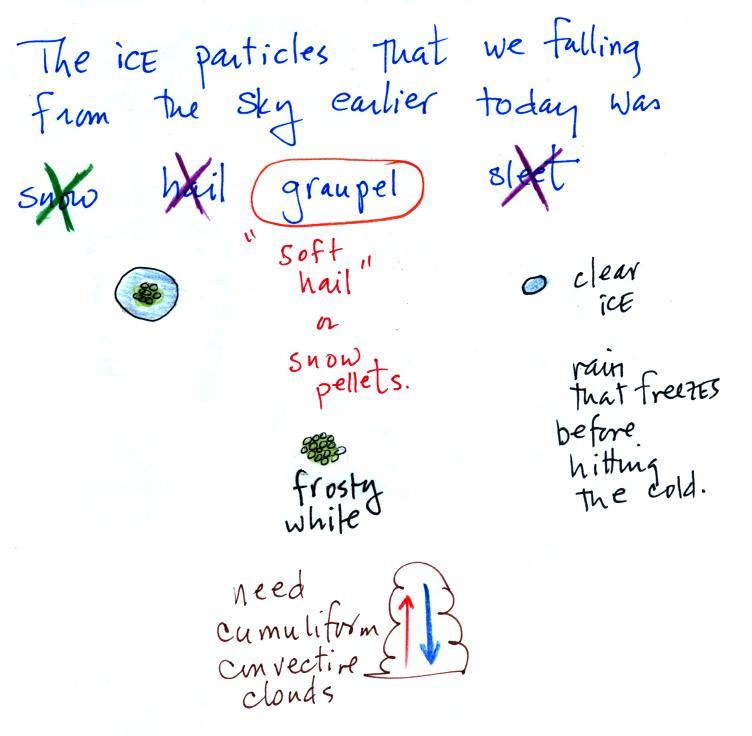 The ICE particles that we falling
from the sky earlier today was
snow hail graupel sleet
"soft
hail"
or
snow
pellets.
frosty
white
clear
ICE
rain
that freezes
before
hitting
the cold.
need
cumuliform
convective
clouds